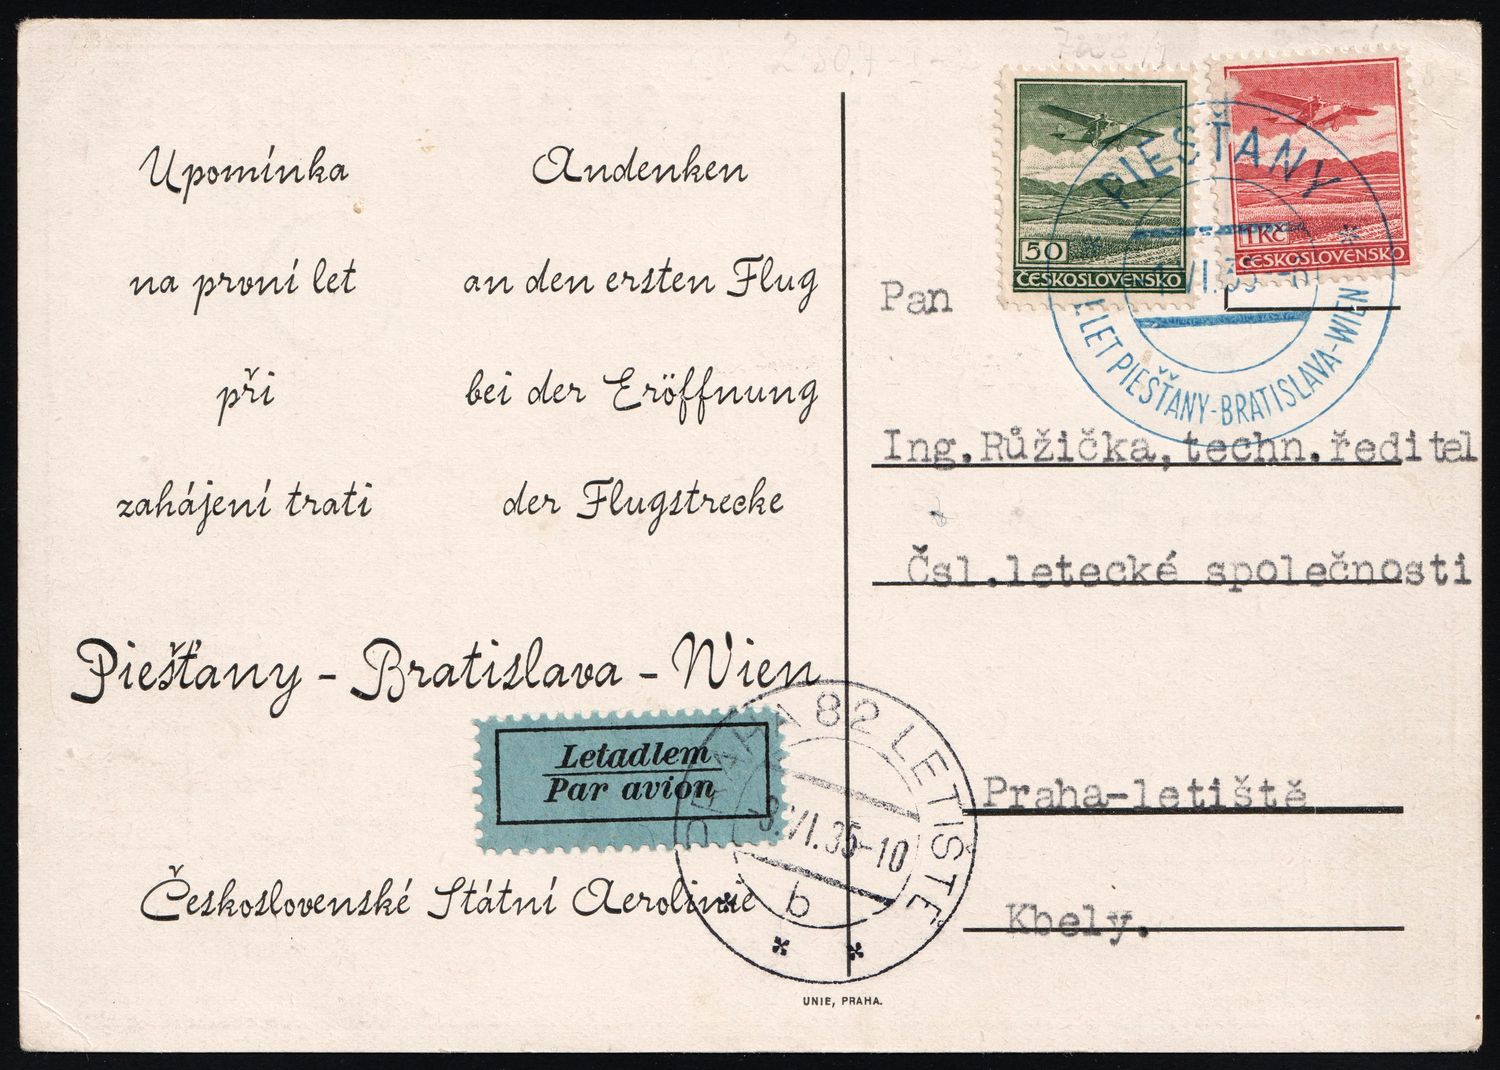 Upomínka
na první let
při
zahájení trati
Andenken
an den ersten Flug
bei der Eröffnung
der Flugstrecke
Piešťany - Bratislava - Wien
Letadlem
Par avion
Československé Státní Aerolinie
50
ČESKOSLOVENSKO
1 Kč
ČESKOSLOVENSKO
PIEŠŤANY
LET PIEŠŤANY-BRATISLAVA-WIEN
Pan
Ing.Růžička,techn.ředitel
Čsl.letecké společnosti
Praha-letiště
Kbely.
PRAHA 82 LETIŠTĚ
3.VI.35-10
b
UNIE, PRAHA.